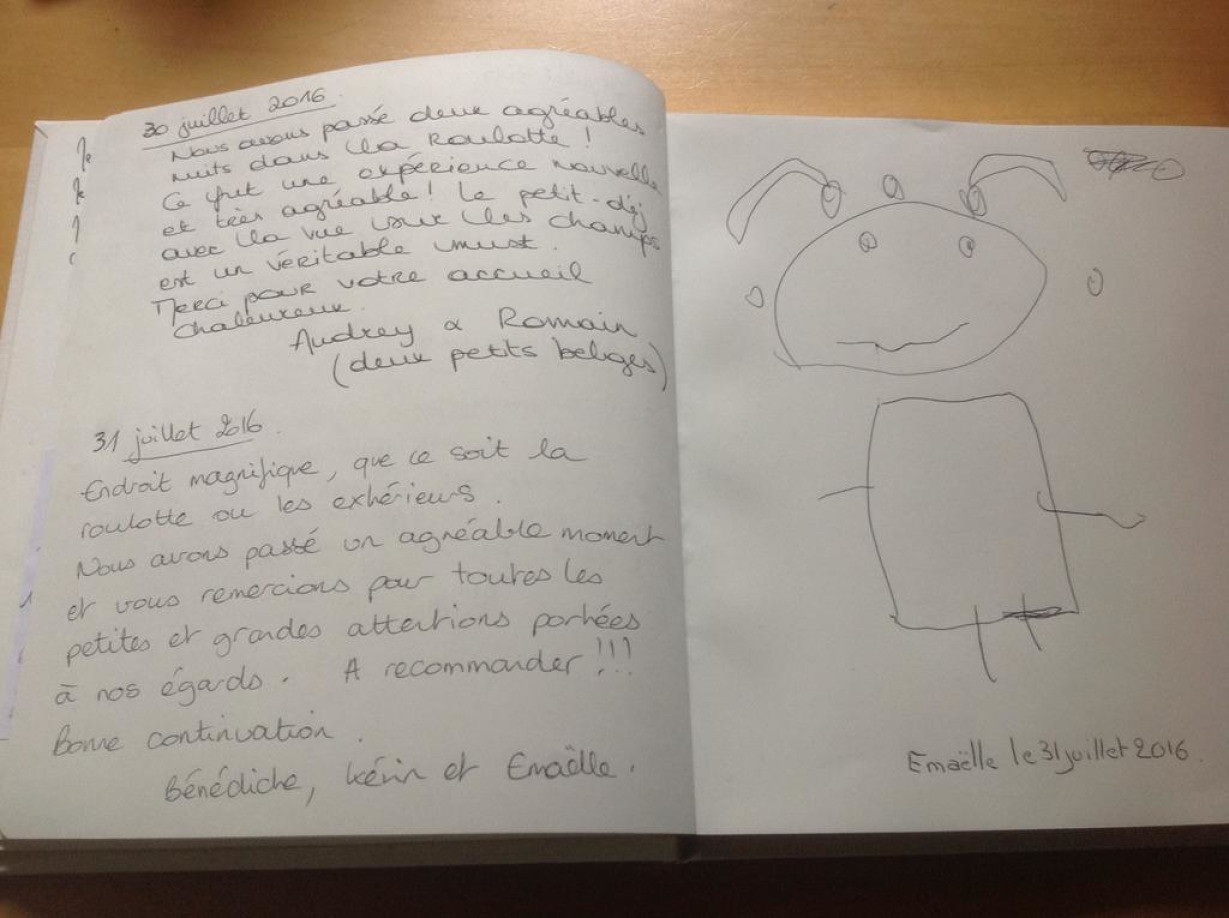 30 juillet 2016.
Nous avons passé deux agréables
nuits dans la Roulotte !
Ce fut une expérience nouvelle
et très agréable ! Le petit-déj
avec la vue sur les champs
est un véritable must.
Merci pour votre accueil
chaleureux.
Audrey & Romain
(deux petits belges)
31 juillet 2016.
Endroit magnifique, que ce soit la
roulotte ou les extérieurs.
Nous avons passé un agréable moment
et vous remercions pour toutes les
petites et grandes attentions portées
à nos égards. A recommander !!!
Bonne continuation.
Bénédicte, Kévin et Emaëlle.
Emaëlle le 31 juillet 2016.